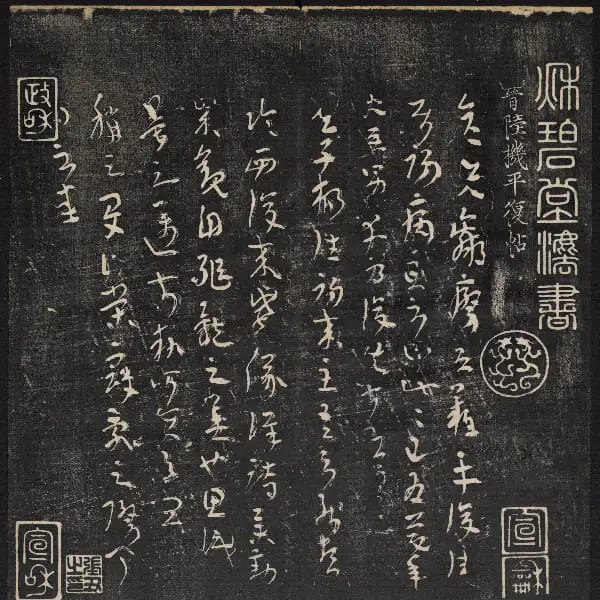 秋碧堂法書
晉陸機平復帖
彦先羸瘵恐難平復往
屬初病慮不止此此已為慶承
使唯男幸為復失前憂耳
吳子楊往初來主吾不能盡
臨西復來威儀詳跱舉動
成觀自軀體之美也思識
量之邁前執所恒有宜
稱之夏伯榮寇亂之際聞
問不悉
政和
宣和
宣和